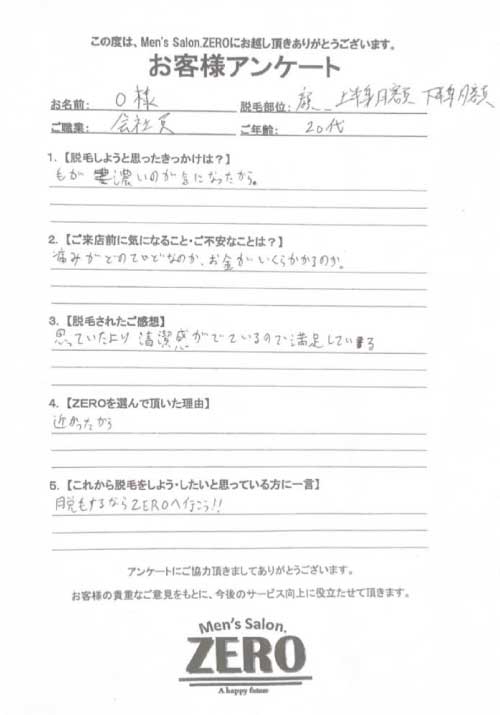 この度は、Men's Salon.ZEROにお越し頂きありがとうございます。
お客様アンケート
お名前: O様 脱毛部位: 上半身 下半身
ご職業: 会社員 ご年齢: 20代
1.【脱毛しようと思ったきっかけは?】
毛が濃いのが気になったから。
2.【ご来店前に気になること・ご不安なことは?】
痛みがどのていどなのか、お金がいくらかかるのか。
3.【脱毛されたご感想】
思っていたより清潔感がでているので満足している
4.【ZEROを選んで頂いた理由】
近かったから
5.【これから脱毛をしよう・したいと思っている方に一言】
脱もするならZEROへ行こう!!
アンケートにご協力頂きましてありがとうございます。
お客様の貴重なご意見をもとに、今後のサービス向上に役立たせて頂きます。
Men's Salon.
ZERO
A happy future